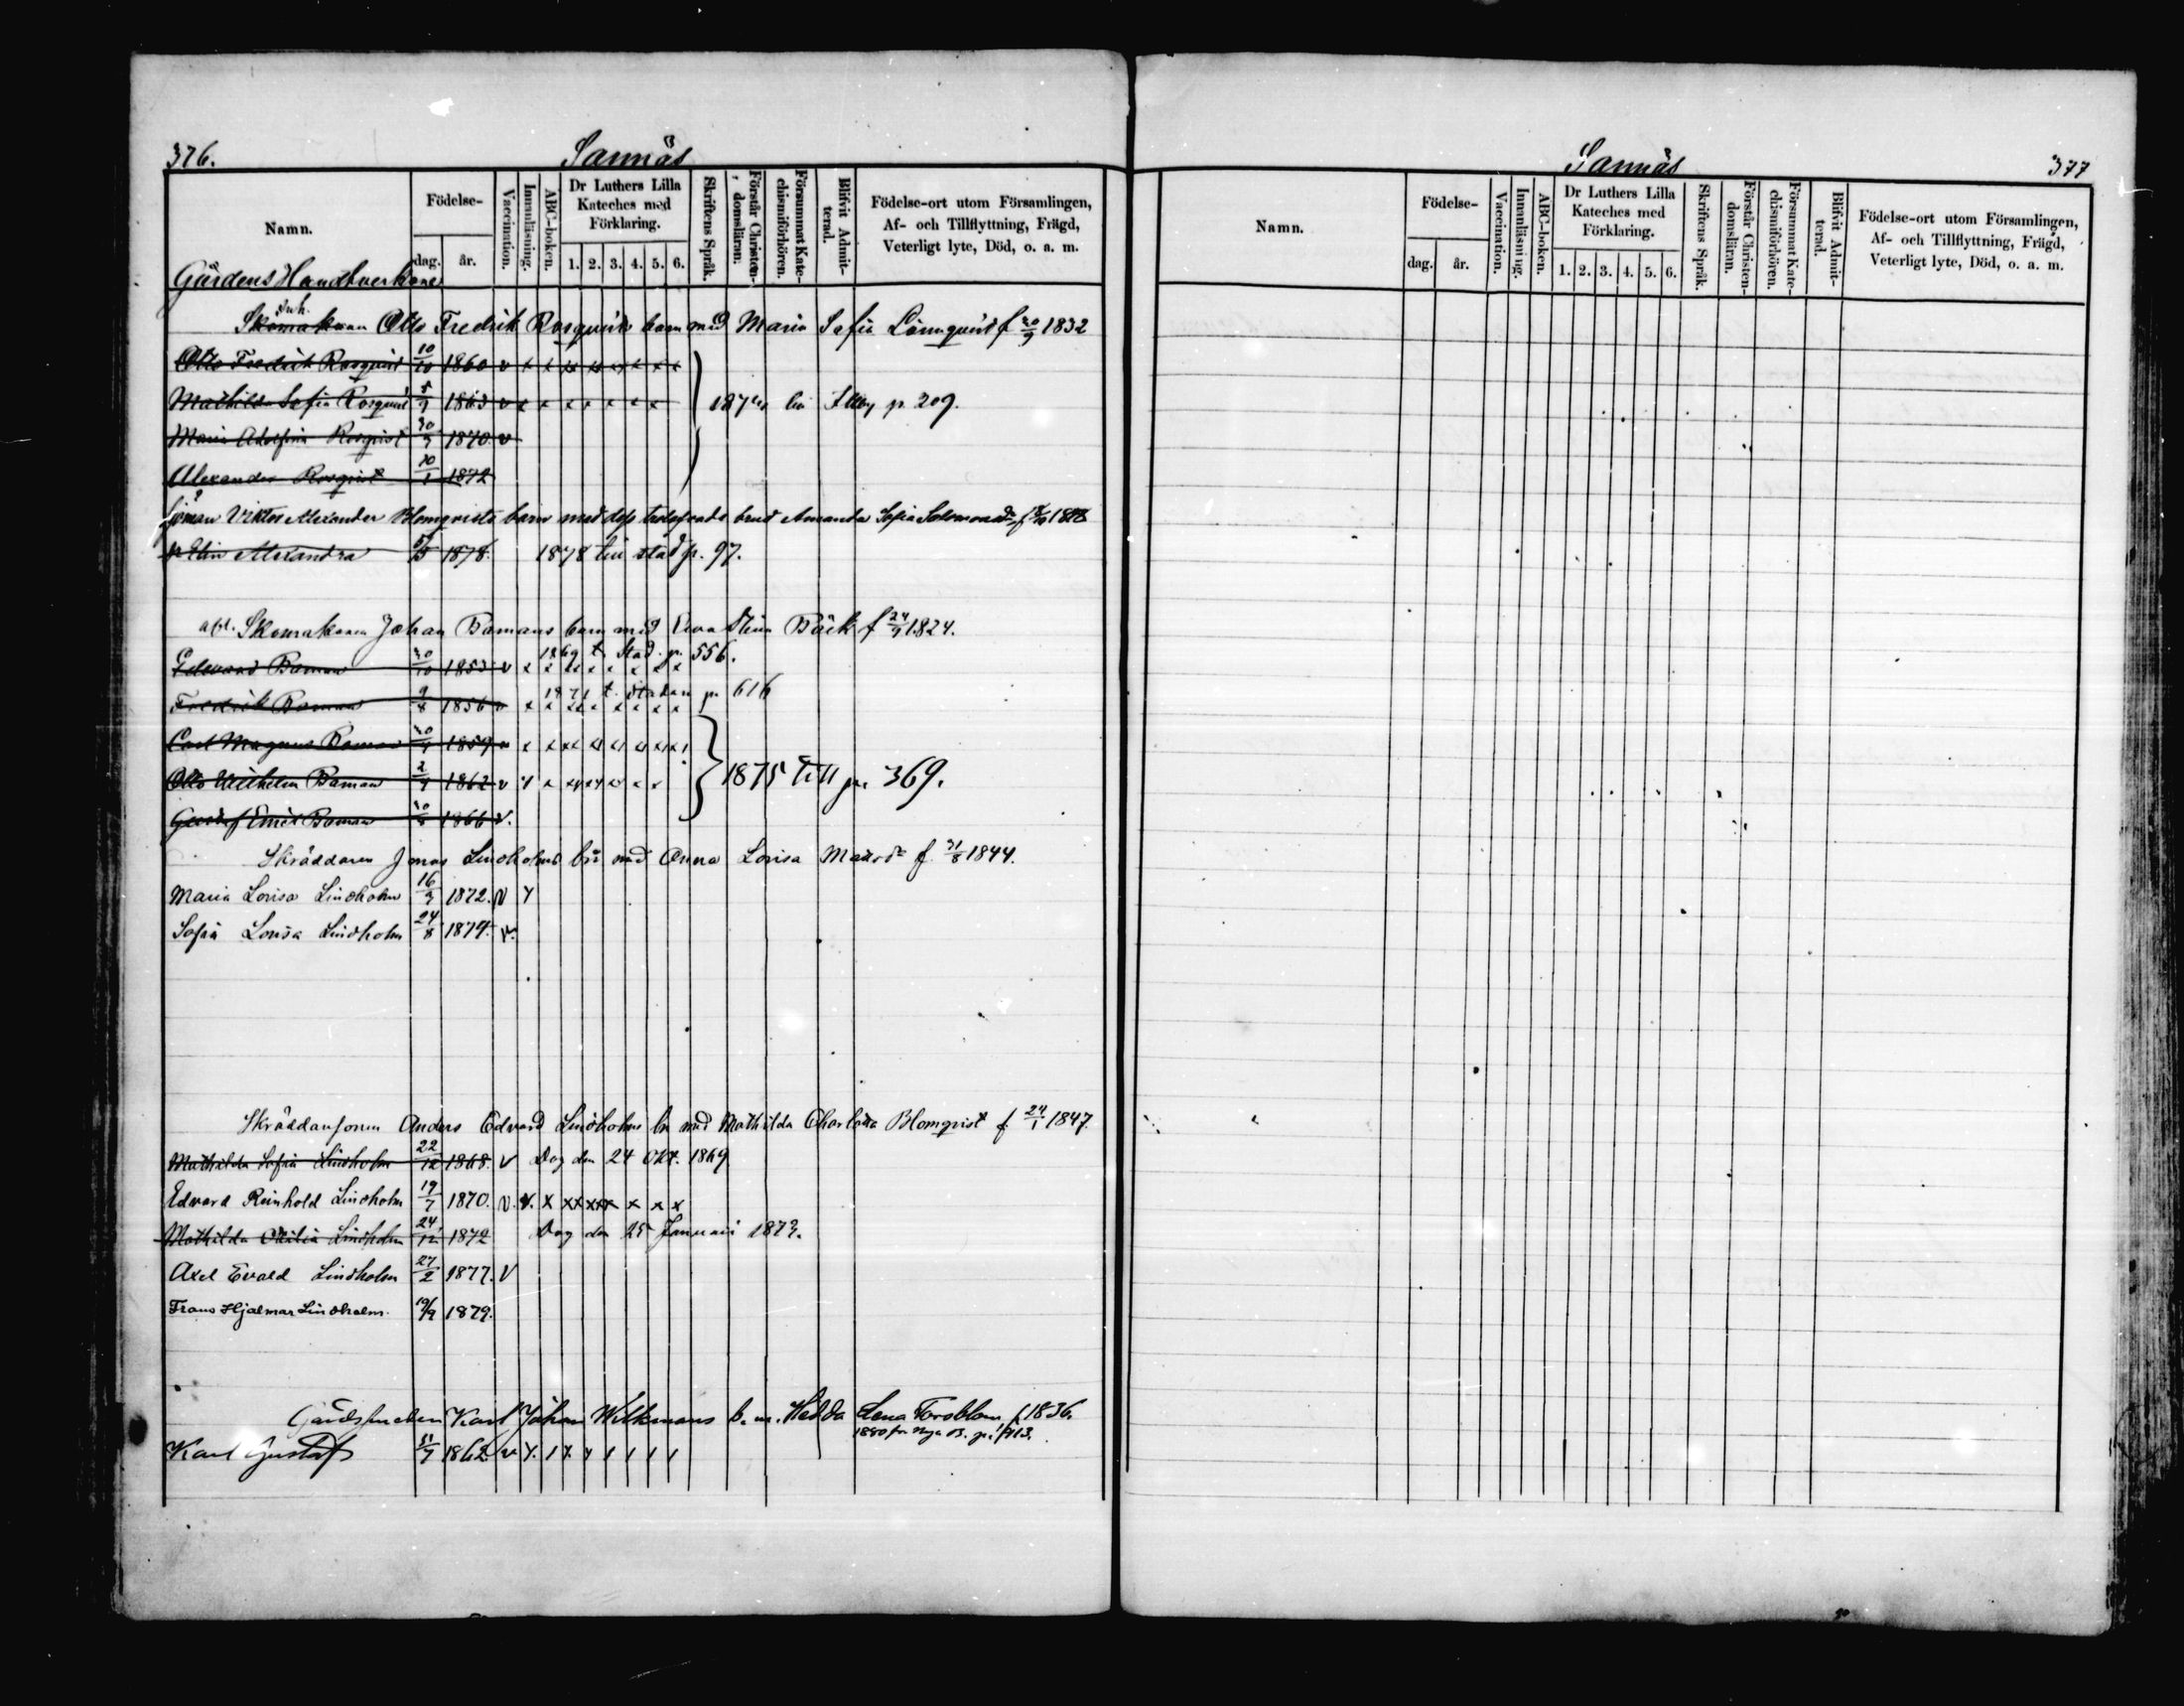 376.
Sannäs
Namn.
Födelse-
dag.
år.
Vaccination.
Innanläsning.
ABC-boken.
Dr Luthers Lilla Kateches med Förklaring.
1. 2. 3. 4. 5. 6.
Skriftens Språk.
Förstår Christendomsläran.
Försummat Katechismiförhören.
Blifvit Admitterad.
Födelse-ort utom Församlingen, Af- och Tillflyttning, Frägd, Veterligt lyte, Död, o. a. m.
Gårdens Handtverkare
Inh.
Skomakaren Otto Fredrik Rosqvists barn med Maria Sofia Lönnqvist f 20/9 1832
Otto Fredrik Rosqvist 10/10 1860 v x x x x x x x x
Mathilda Sofia Rosqvist 5/9 1863 v x x x x x x x
1874 till Illby p. 209.
Maria Adolfina Rosqvist 30/3 1870 v
Alexander Rosqvist 10/1 1872
Viktor Alexander Blomqvists barn med dess trolofvade brud Amanda Sofia
Elin Alexandra 1878. 1878 till stad p. 97.
afl. Skomakaren Johan Bomans barn med Eva Stina Bäck f 24/9 1824.
1869 t. Stad. p. 556.
Edward Boman 30/10 1853 v x x x x x x x
1871 t. staden p. 616
Fredrik Boman 9/8 1856 v x x x x x x x x
Carl Magnus Boman 1859 v x x x x
Otto Wilhelm Boman 2/4 1862 v
1875 till p. 369.
Gustaf Emil Boman 1866 v.
Skräddaren Jonas Lindholms bn med Anna Lovisa f. 31/8 1844.
Maria Lovisa Lindholm 16/3 1872. v
Sofia Lovisa Lindholm 24/8 1874. v.
Skräddaresonen Anders Edvard Lindholms bn med Mathilda Charlotta Blomqvist f. 24/1 1847.
Mathilda Sofia Lindholm 22/12 1868. v Dog den 24 Okt. 1869
Edvard Reinhold Lindholm 19/7 1870. v. v. x x x x x x x x x
Mathilda Lindholm 24/12 1872 Dog den 25 Januari 1873.
Axel Evald Lindholm 27/2 1877. v
Frans Hjalmar Lindholm. 19/9 1879.
Karl Johan Wilkmans b. m. Hedda Lena Forsblom f. 1836.
1880 fr. nya B. p. 713.
Karl Gustaf 1862 v
Sannäs
377
Namn.
Födelse-
dag.
år.
Vaccination.
Innanläsning.
ABC-boken.
Dr Luthers Lilla Kateches med Förklaring.
1. 2. 3. 4. 5. 6.
Skriftens Språk.
Förstår Christendomsläran.
Försummat Katechismiförhören.
Blifvit Admitterad.
Födelse-ort utom Församlingen, Af- och Tillflyttning, Frägd, Veterligt lyte, Död, o. a. m.